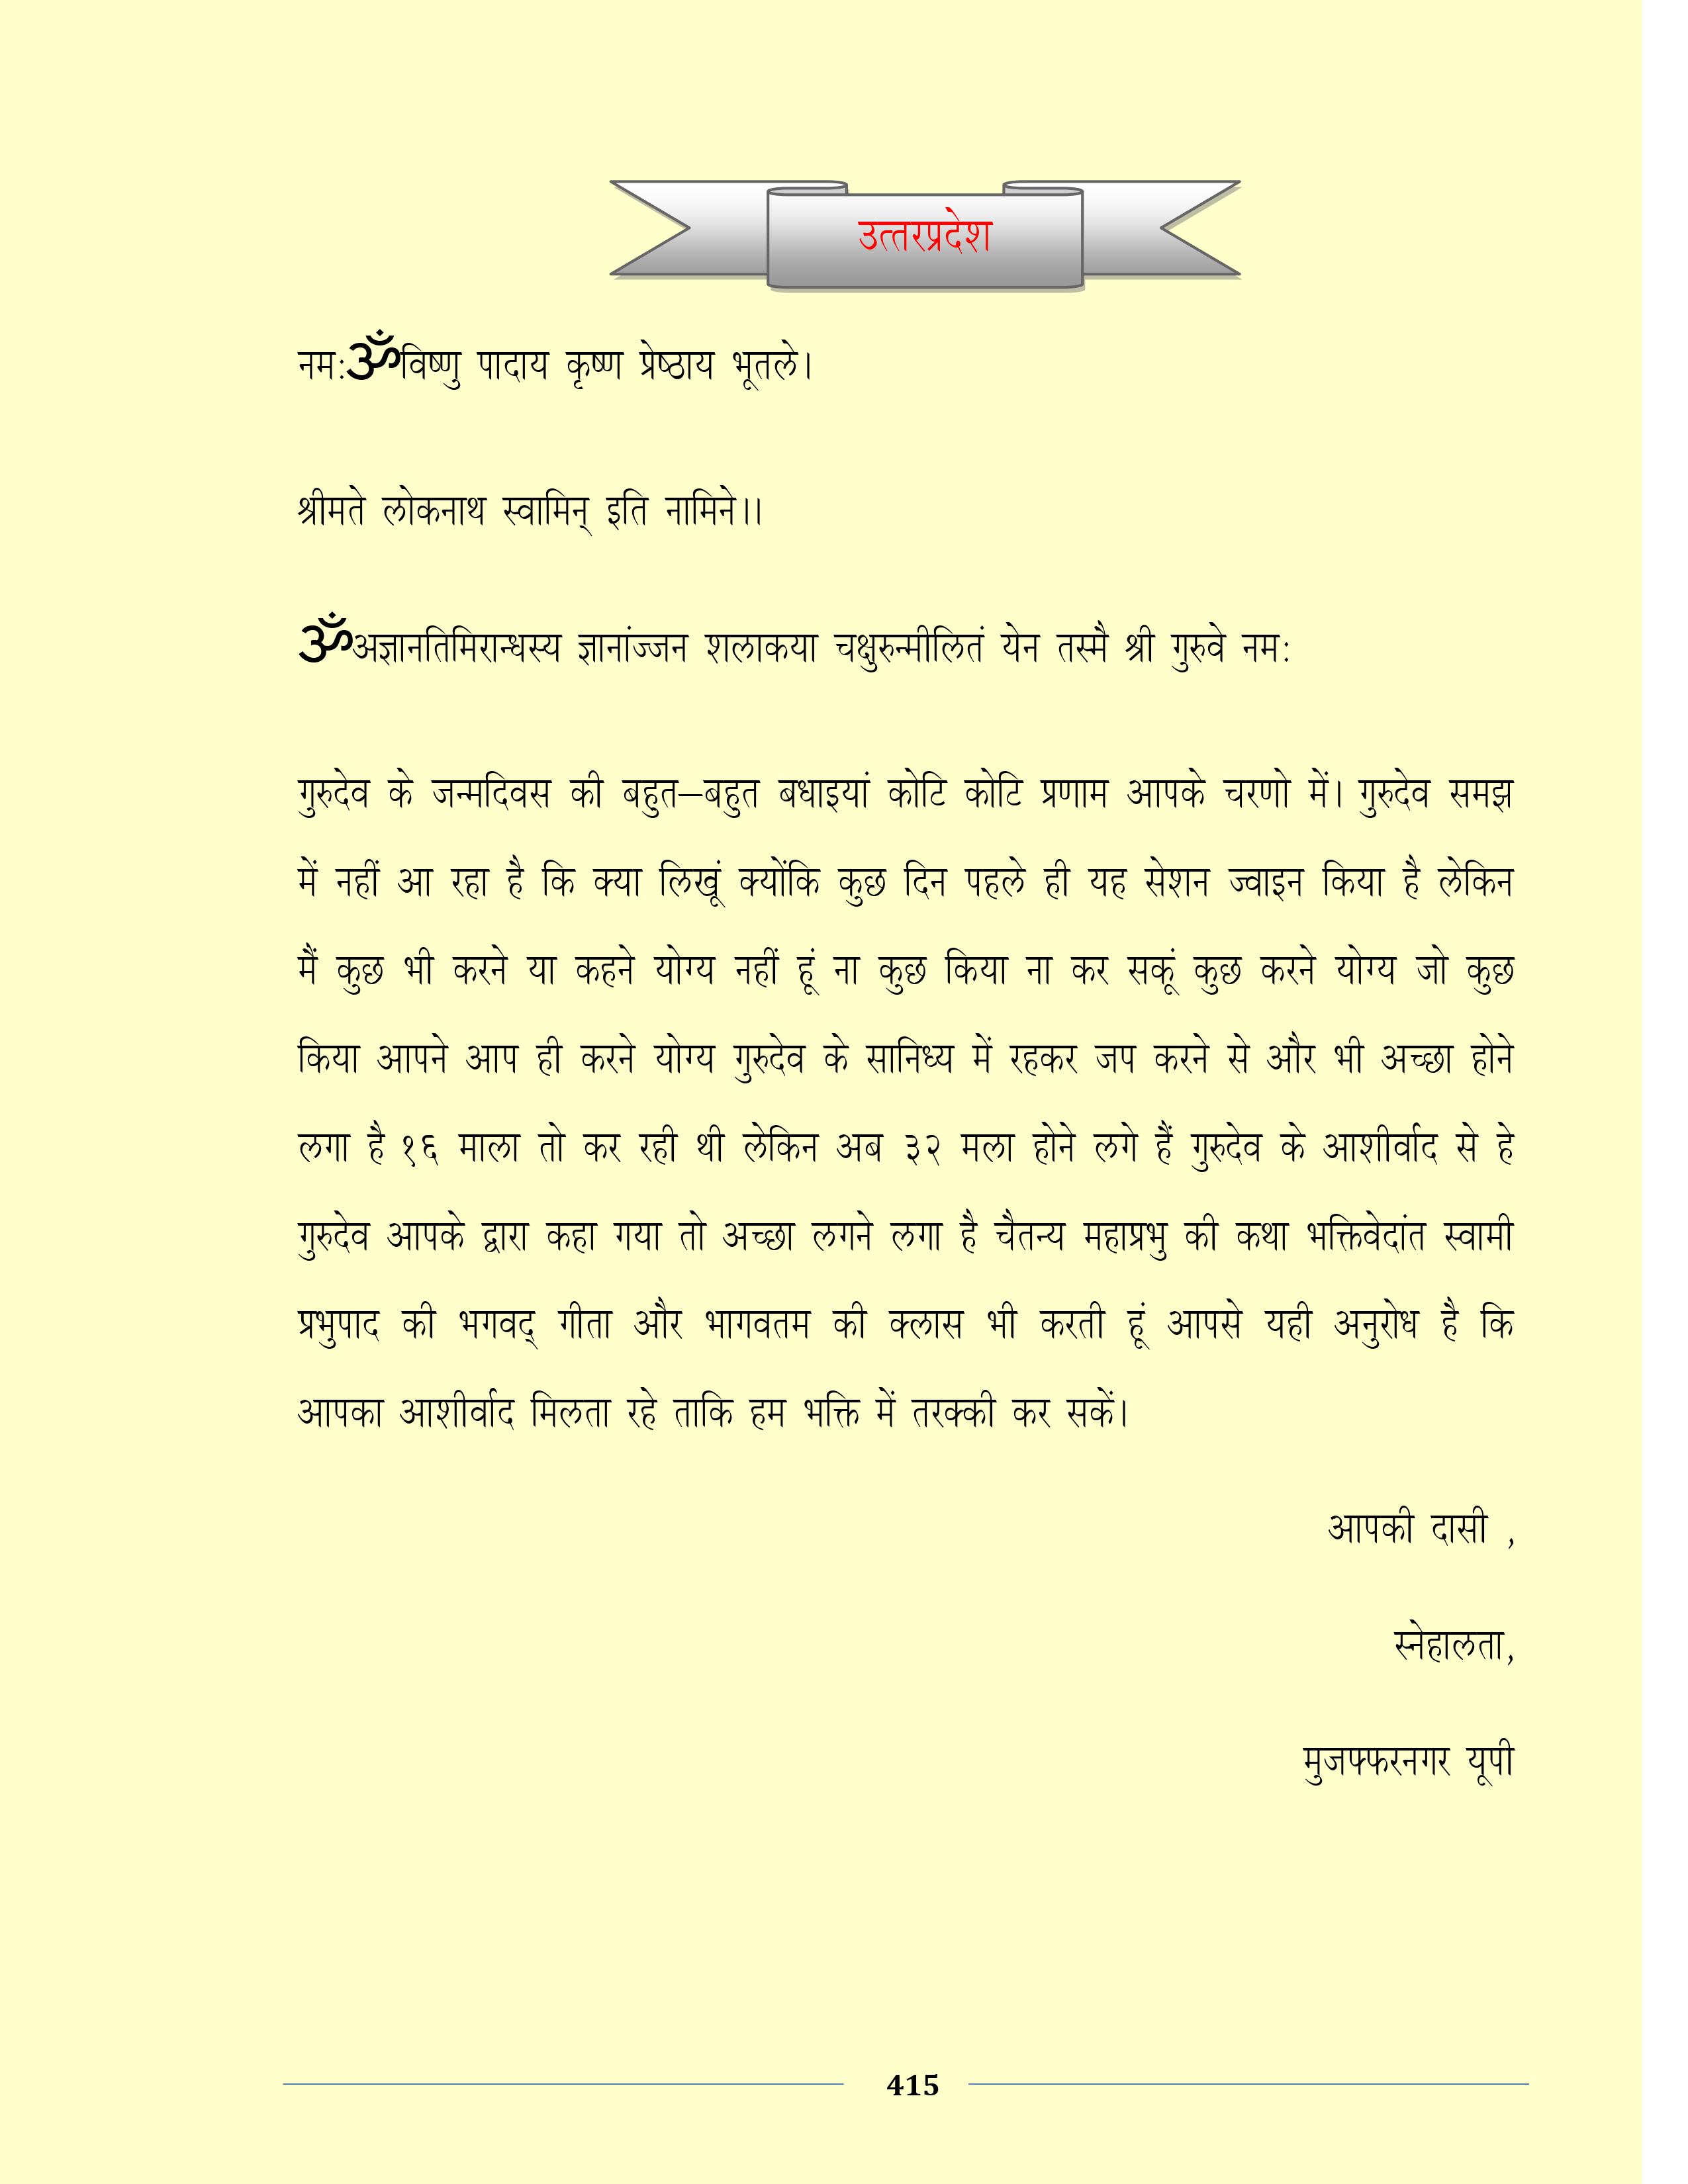 उत्तरप्रदेश
नम:ॐविष्णु पादाय कृष्ण प्रेष्ठाय भूतले।
श्रीमते लोकनाथ स्वामिन् इति नामिने।।
ॐअज्ञानतिमिरान्धस्य ज्ञानांज्जन शलाकया चक्षुरुन्मीलितं येन तस्मै श्री गुरुवे नम:
गुरुदेव के जन्मदिवस की बहुत–बहुत बधाइयां कोटि कोटि प्रणाम आपके चरणो में। गुरुदेव समझ
में नहीं आ रहा है कि क्या लिखूं क्योंकि कुछ दिन पहले ही यह सेशन ज्वाइन किया है लेकिन
मैं कुछ भी करने या कहने योग्य नहीं हूं ना कुछ किया ना कर सकूं कुछ करने योग्य जो कुछ
किया आपने आप ही करने योग्य गुरुदेव के सानिध्य में रहकर जप करने से और भी अच्छा होने
लगा है १६ माला तो कर रही थी लेकिन अब ३२ मला होने लगे हैं गुरुदेव के आशीर्वाद से हे
गुरुदेव आपके द्वारा कहा गया तो अच्छा लगने लगा है चैतन्य महाप्रभु की कथा भक्तिवेदांत स्वामी
प्रभुपाद की भगवद् गीता और भागवतम की क्लास भी करती हूं आपसे यही अनुरोध है कि
आपका आशीर्वाद मिलता रहे ताकि हम भक्ति में तरक्की कर सकें।
आपकी दासी ,
स्नेहालता,
मुजफ्फरनगर यूपी
415